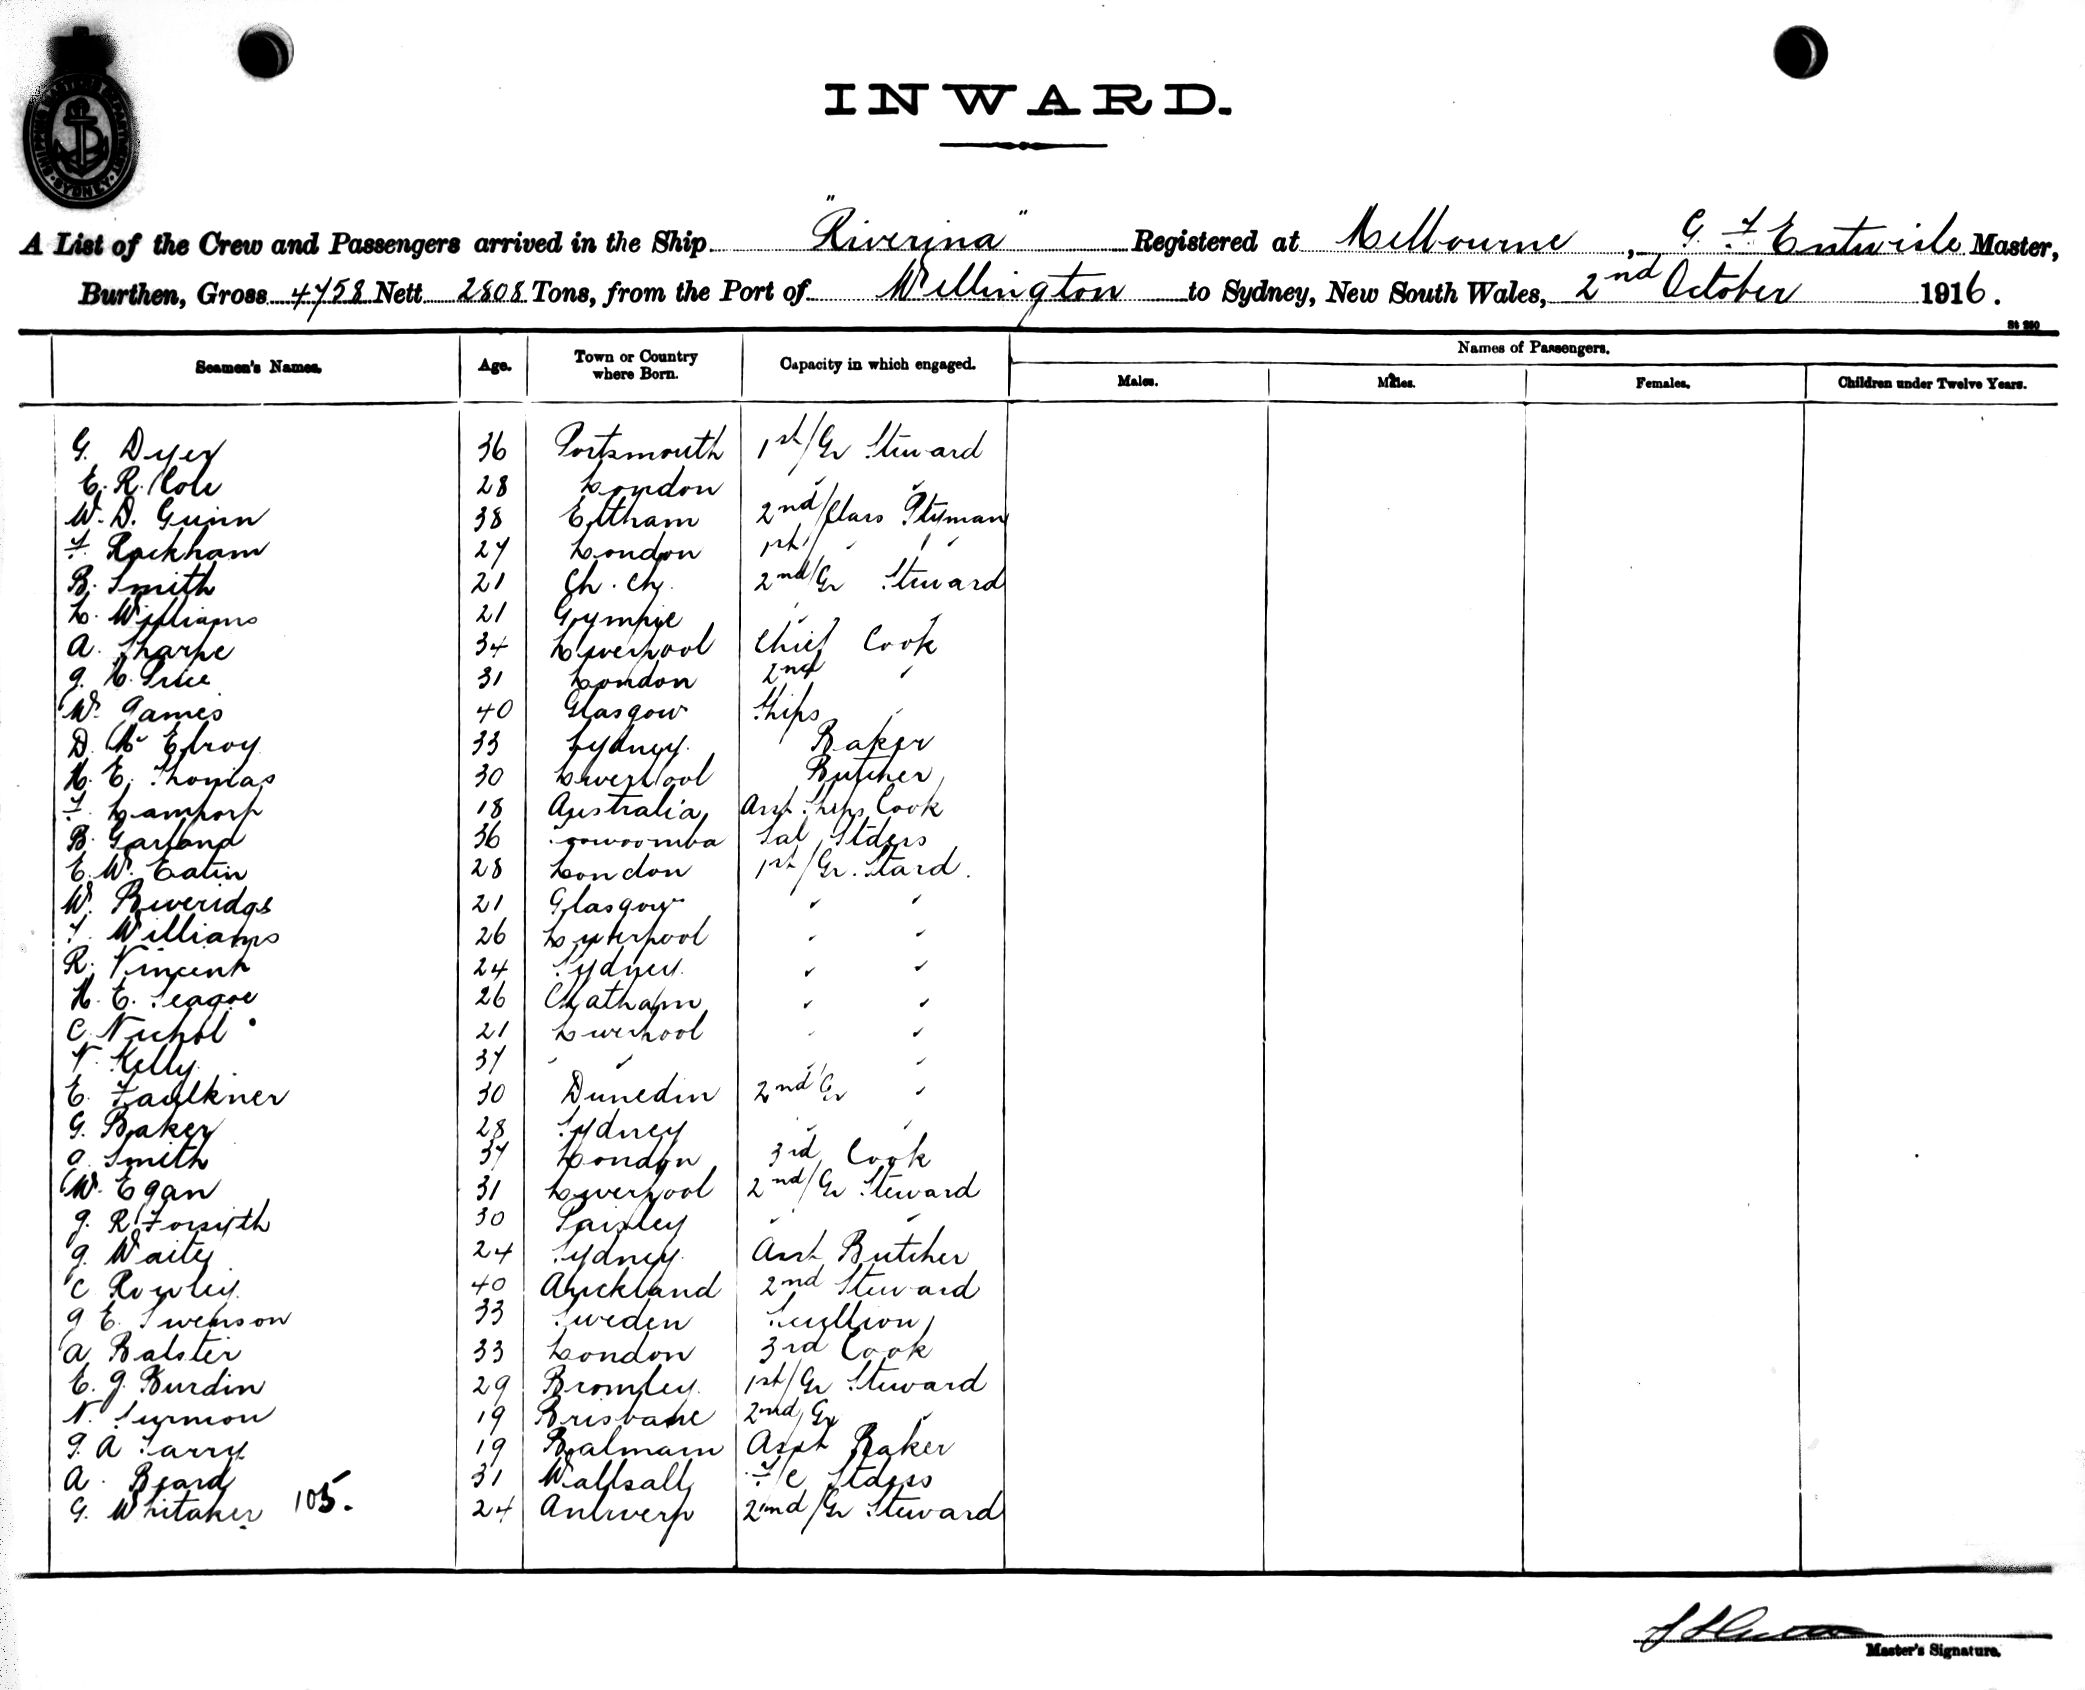 INWARD.
A List of the Crew and Passengers arrived in the Ship "Riverina" Registered at Melbourne, G. F. Entwisle Master,
Burthen, Gross 4758 Nett 2808 Tons, from the Port of Wellington to Sydney, New South Wales, 2nd October 1916.
St 260
Seamen's Names. Age. Town or Country where Born. Capacity in which engaged. Names of Passengers.
Males. Males. Females. Children under Twelve Years.
G. Dyer 36 Portsmouth 1st/Gr Steward
E. R. Cole 28 London " "
W. D. Gunn 38 Eltham 2nd/Class Ptyman
F. Rackham 27 London 1st/ " "
B. Smith 21 Ch. Ch. 2nd/Gr Steward
L. Williams 21 Gympie " "
A. Sharpe 34 Liverpool Chief Cook
J. H. Price 31 London 2nd "
W. James 40 Glasgow Ships "
D. Mc Elroy 33 Sydney Baker
H. E. Thomas 30 Liverpool Butcher
F. 18 Australia Asst Ships Cook
B. Garland 36 Toowoomba Sal Stdess
E. W. Eatin 28 London 1st/Gr. Stard.
W. Beveridge 21 Glasgow " "
F. Williams 26 Liverpool " "
R. Vincent 24 Sydney " "
H. E. Seagoe 26 Chatham " "
C. Nichol 21 Liverpool " "
V. Kelly 37 " " " "
E. Faulkner 30 Dunedin 2nd Gr "
G. Baker 28 Sydney " "
A. Smith 37 London 3rd Cook
W. Egan 31 Liverpool 2nd/Gr Steward
J. R. Forsyth 30 Paisley " "
J. Waite 24 Sydney Asst Butcher
C Rowley 40 Auckland 2nd Steward
J E. Swenson 33 Sweden Scullion
A Balster 33 London 3rd Cook
E. J. Burdin 29 Bromley 1st/Gr Steward
N. Surmon 19 Brisbane 2nd Gr "
J. A Tarry 19 Balmain Asst Baker
A. Beard 31 Wallsall F/C Stdess
G. Whitaker 105. 24 Antwerp 2nd/Gr Steward
Master's Signature.